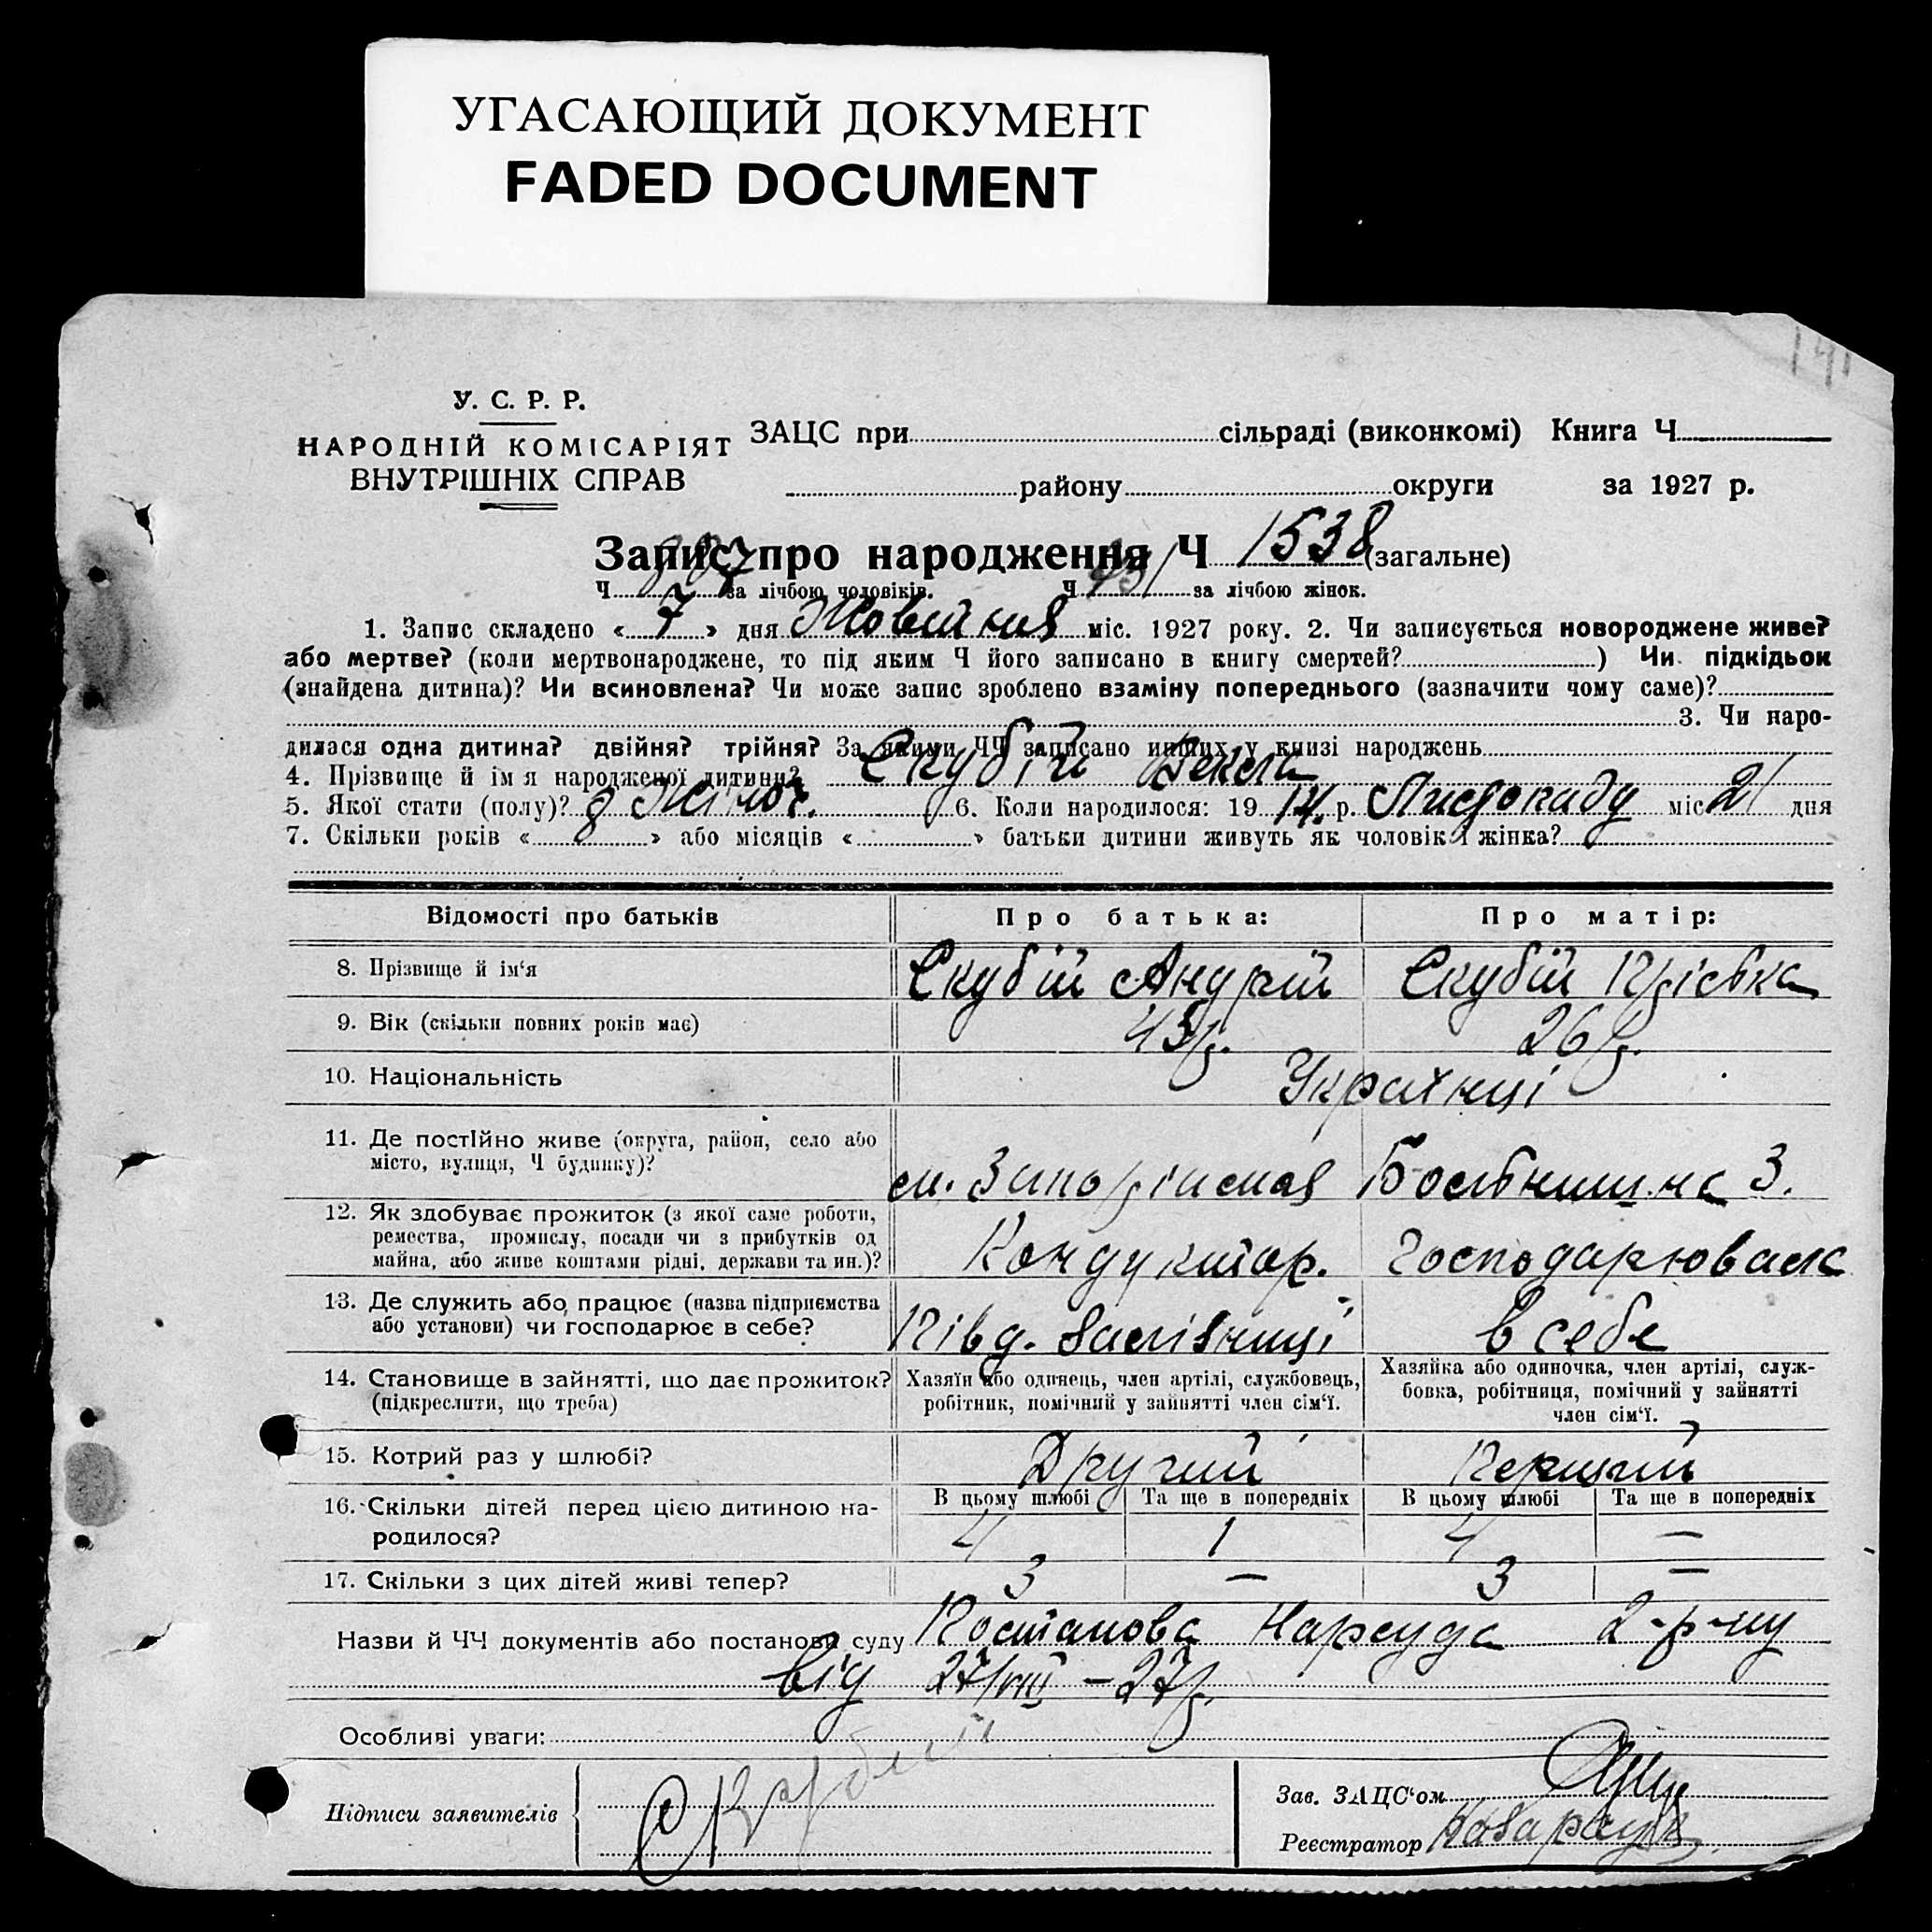 УГАСАЮЩИЙ ДОКУМЕНТ
FADED DOCUMENT
У. С. Р. Р.
НАРОДНІЙ КОМІСАРІЯТ
ВНУТРІШНІХ СПРАВ
ЗАЦС при сільраді (виконкомі) Книга Ч
району округи за 1927 р.
Запис про народження Ч 1538 (загальне)
Ч за лічбою чоловіків. Ч за лічбою жінок.
1. Запис складено « 7 » дня Жовтня міс. 1927 року. 2. Чи записується новороджене живе?
або мертве? (коли мертвонароджене, то під яким Ч його записано в книгу смертей? ) Чи підкідьок
(знайдена дитина)? Чи всиновлена? Чи може запис зроблено взаміну попереднього (зазначити чому саме)?
3. Чи наро-
дилася одна дитина? двійня? трійня? За якими ЧЧ записано инших у книзі народжень
4. Прізвище й ім я народженої дитини? Скубій Векла
5. Якої стати (полу)? Жіноч. 6. Коли народилося: 19 14 р. Листопаду міс 21 дня
7. Скільки років « » або місяців « » батьки дитини живуть як чоловік і жінка?
Відомості про батьків
Про батька:
Про матір:
8. Прізвище й ім'я
Скубій Андрій
Скубій Пріська
9. Вік (скільки повних років має)
45 р.
26 р.
10. Національність
Українці
11. Де постійно живе (округа, район, село або
місто, вулиця, Ч будинку)?
12. Як здобуває прожиток (з якої саме роботи,
ремества, промислу, посади чи з прибутків од
майна, або живе коштами рідні, держави та ин.)?
Кондуктор.
Господарювала
13. Де служить або працює (назва підприємства
або установи) чи господарює в себе?
Півд. Залізниці
в себе
14. Становище в зайнятті, що дає прожиток?
(підкреслити, що треба)
Хазяїн або одинець, член артілі, службовець,
робітник, помічний у зайнятті член сім'ї.
Хазяйка або одиночка, член артілі, служ-
бовка, робітниця, помічний у зайнятті
член сім'ї.
15. Котрий раз у шлюбі?
Другий
Перший
16. Скільки дітей перед цією дитиною на-
родилося?
В цьому шлюбі Та ще в попередніх В цьому шлюбі Та ще в попередніх
4 1 4 —
17. Скільки з цих дітей живі тепер?
3 — 3 —
Назви й ЧЧ документів або постанови суду Постанова Нарсуда 2-р-ну
від 27/VIII – 27 р.
Особливі уваги:
Підписи заявителів
Скубий
Зав. ЗАЦС'ом
Реєстратор